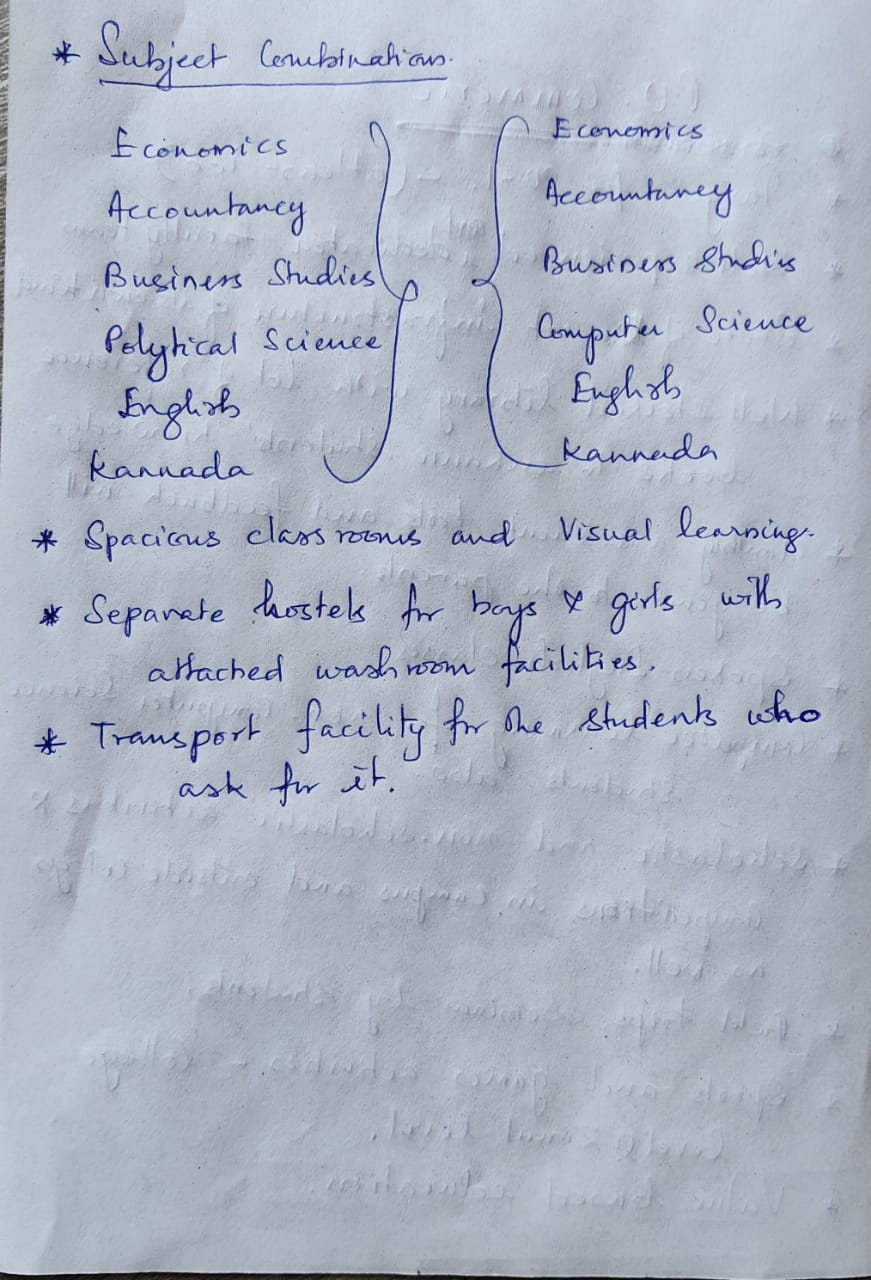 * Subject Combinations.
Economics
Accountancy
Business Studies
Polytical Science
English
Kannada
Economics
Accountancy
Business Studies
Computer Science
English
Kannada
* Spacious class rooms and Visual learnings.
* Separate hostels for boys & girls with
attached washroom facilities.
* Transport facility for the students who
ask for it.